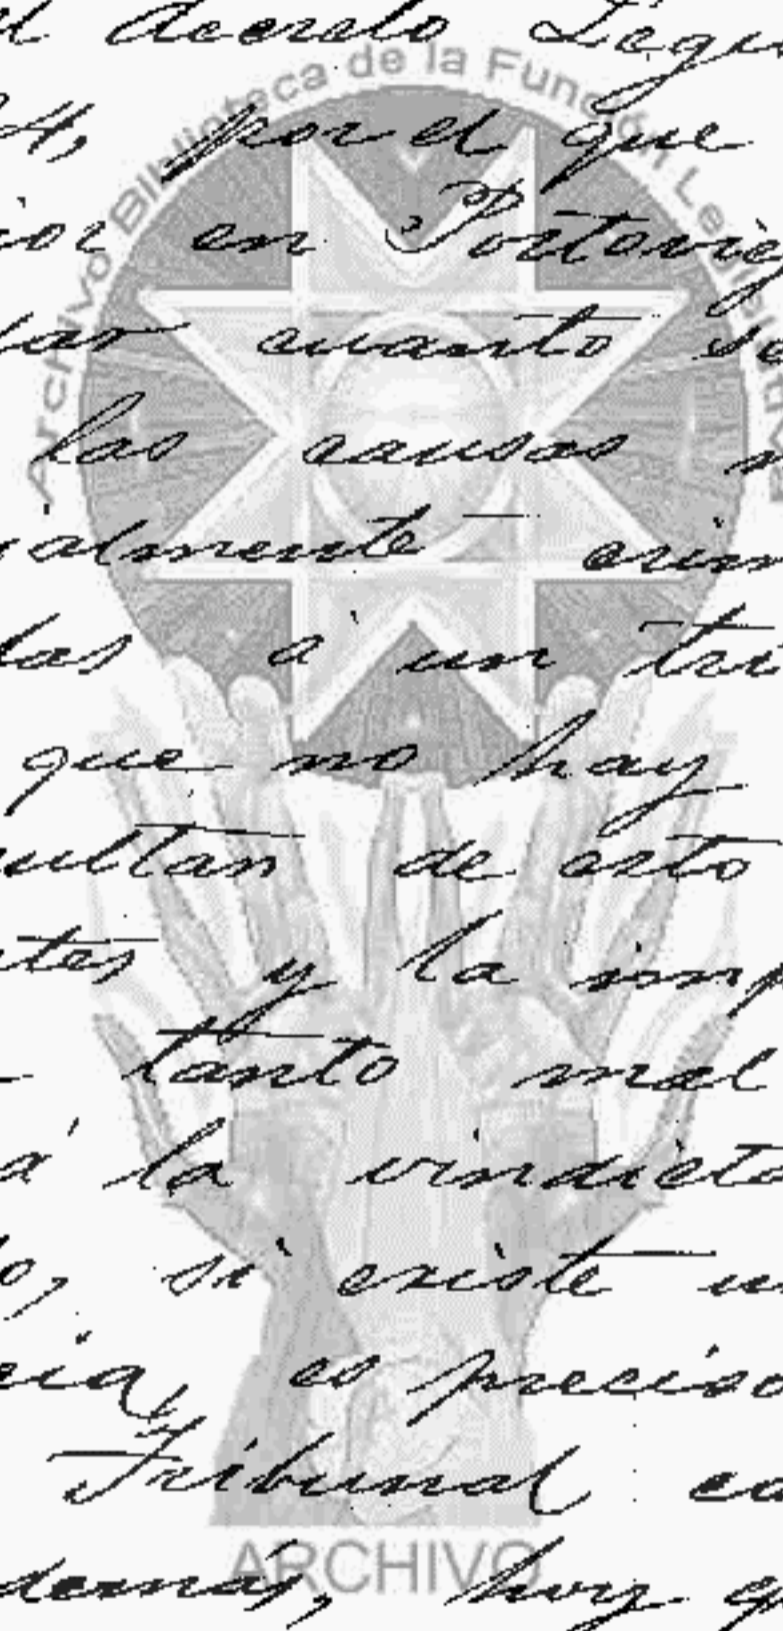 Archivo Biblioteca de la Función Legislativa
l Decreto Legis
4, por el que
ior en Portovie
lar cuanto se
las causas
ialmente crim
das á un tri
que no hay
sultan de esto
ntes y la imp
tanto mal
á la vindicta
do, si existe un
cia, es preciso
Tribunal
demás, hoy q
ARCHIVO